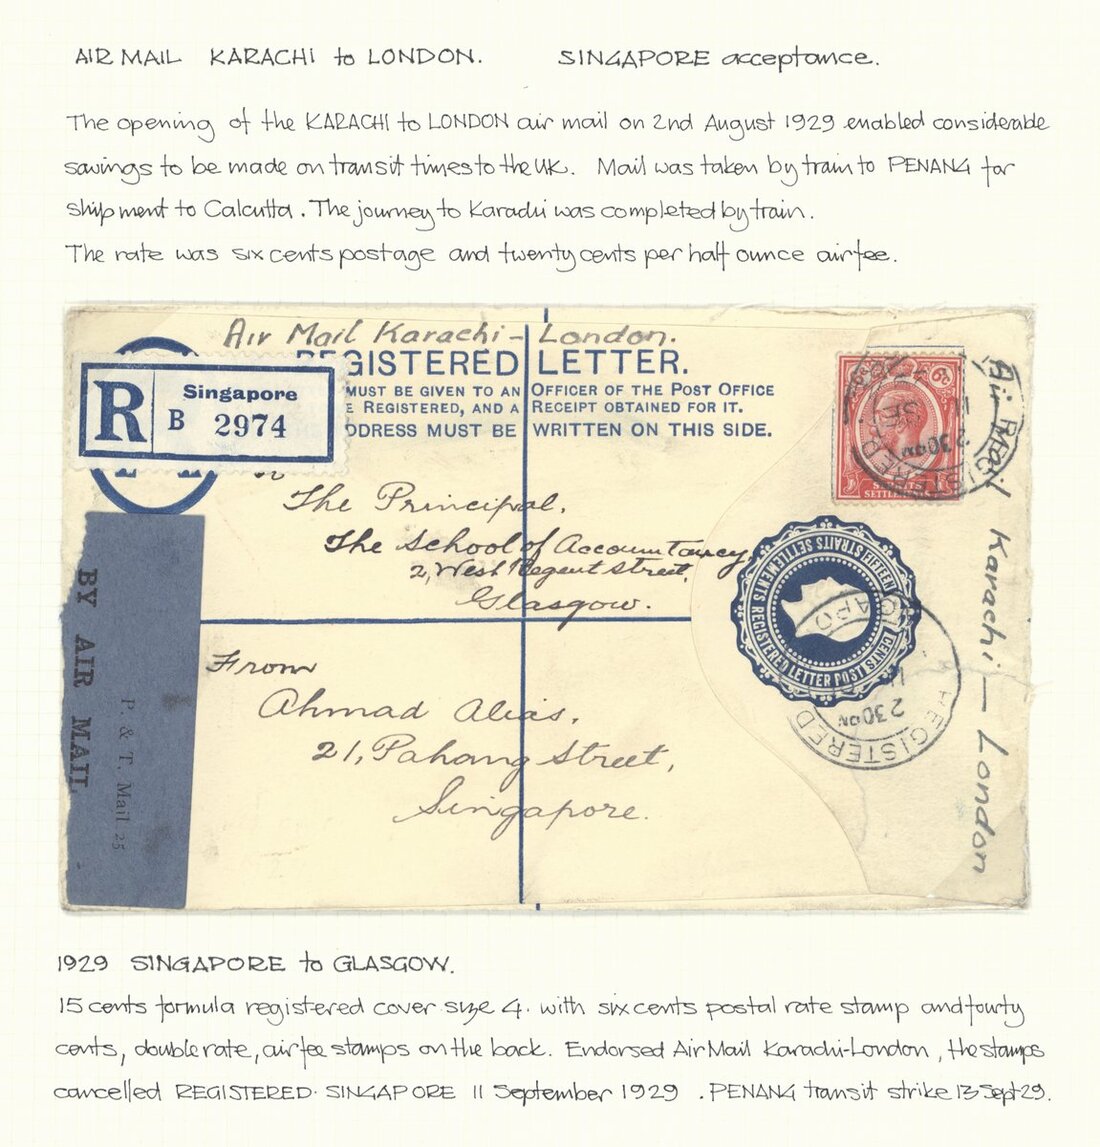 AIR MAIL KARACHI to LONDON. SINGAPORE acceptance.
The opening of the KARACHI to LONDON air mail on 2nd August 1929 enabled considerable
savings to be made on transit times to the UK. Mail was taken by train to PENANG for
shipment to Calcutta. The journey to Karachi was completed by train.
The rate was six cents postage and twenty cents per half ounce airfee.
Air Mail Karachi - London.
REGISTERED LETTER.
MUST BE GIVEN TO AN OFFICER OF THE POST OFFICE
E REGISTERED, AND A RECEIPT OBTAINED FOR IT.
DDRESS MUST BE WRITTEN ON THIS SIDE.
R
Singapore
B 2974
The Principal,
The School of Accountancy,
2, West Regent Street,
Glasgow.
From
Ahmad Alias,
21, Pahang Street,
Singapore.
BY AIR MAIL
P. & T. Mail 25
6c
SETTLEMENTS
REGISTERED
230PM
STRAITS SETTLEMENTS REGISTERED LETTER POSTAGE FIFTEEN CENTS
REGISTERED
11
230PM
Air Mail Karachi - London
1929 SINGAPORE to GLASGOW.
15 cents formula registered cover size 4. with six cents postal rate stamp and fourty
cents, double rate, airfee stamps on the back. Endorsed Air Mail Karachi-London, the stamps
cancelled REGISTERED. SINGAPORE 11 September 1929 . PENANG transit strike 13 Sept 29.